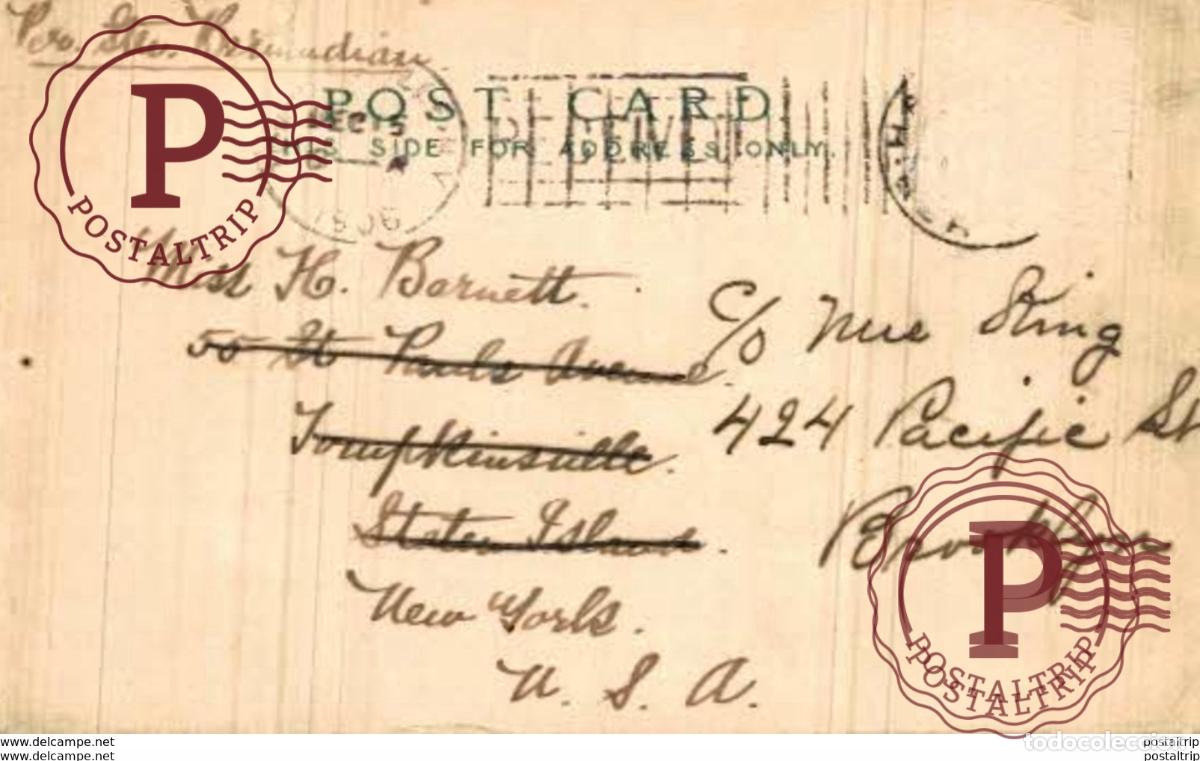 Per. Str. Bermudian.
POST CARD.
THIS SIDE FOR ADDRESS ONLY.
DEC 15
RECEIVED
1906
P
POSTALTRIP
Miss H. Barnett.
55 St Pauls Avenue.
Tompkinsville.
Staten Island.
New York.
U. S. A.
c/o Mme King
424 Pacific St
Brooklyn
P
POSTALTRIP
POSTALTRIP
todocoleccion
www.delcampe.net
postaltrip
www.delcampe.net
postaltrip